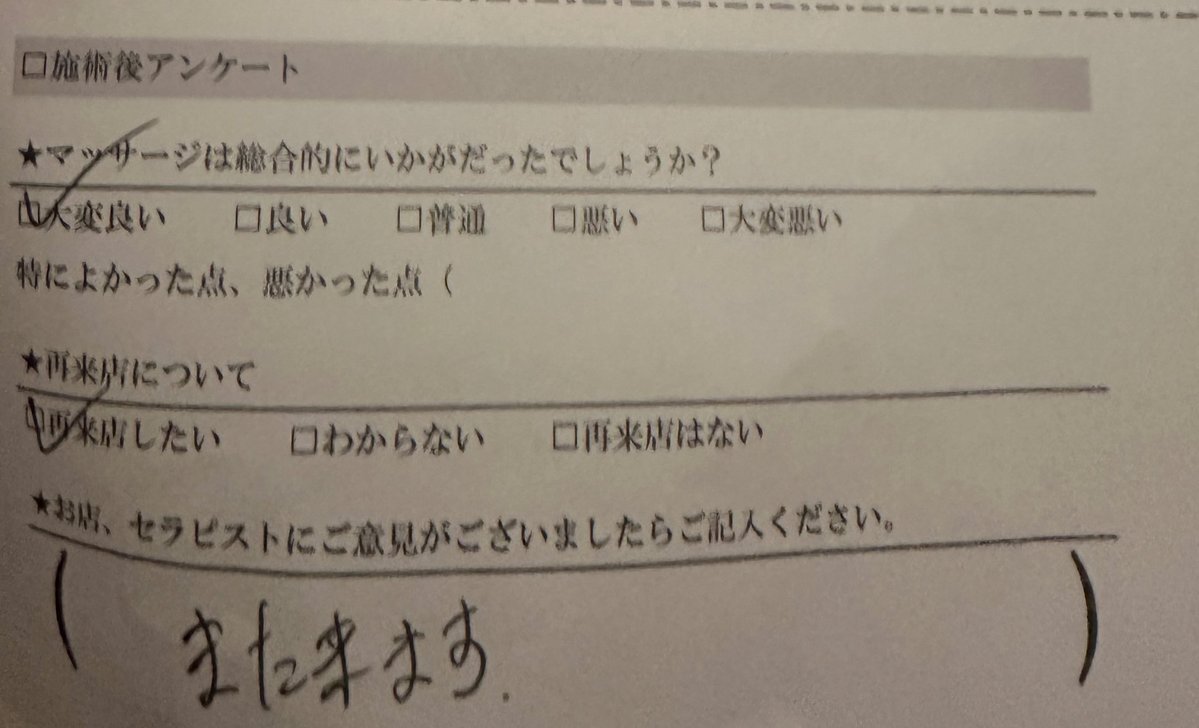 □施術後アンケート
★マッサージは総合的にいかがだったでしょうか？
☑大変良い　□良い　□普通　□悪い　□大変悪い
特によかった点、悪かった点（
★再来店について
☑再来店したい　□わからない　□再来店はない
★お店、セラピストにご意見がございましたらご記入ください。
（また来ます.）